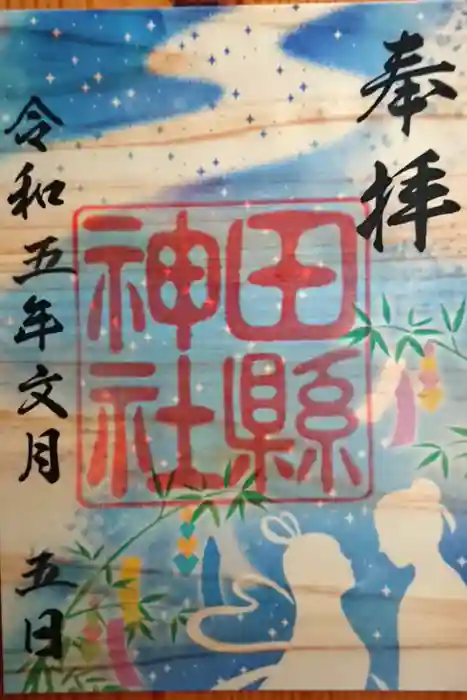 奉拝
田縣
神社
令和五年文月
五日